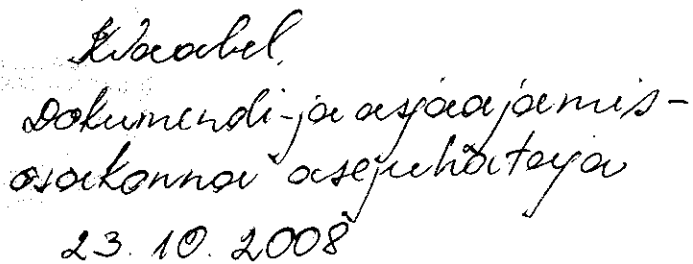 Dokumendi-ja asjaajamis-
osakonna asejuhataja
23.10.2008